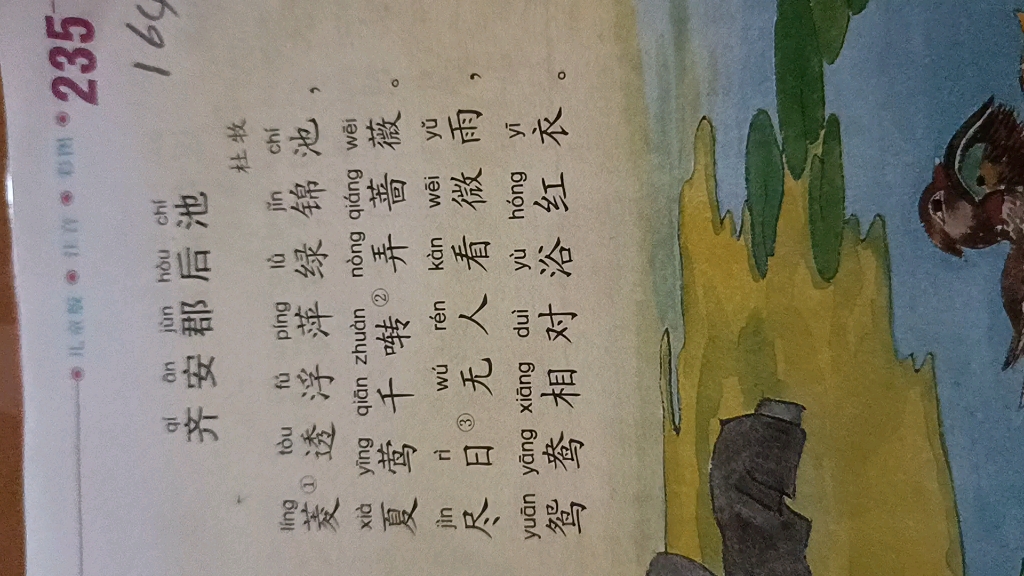 儿童版 注音 彩图 235
164
qí ān jùn hòu chí
齐安郡后池
杜牧
líng tòu fú píng lǜ jǐn chí
菱①透浮萍绿锦池，
xià yīng qiān zhuàn nòng qiáng wēi
夏莺千啭②弄蔷薇。
jìn rì wú rén kàn wēi yǔ
尽日③无人看微雨，
yuān yāng xiāng duì yù hóng yī
鸳鸯相对浴红衣。